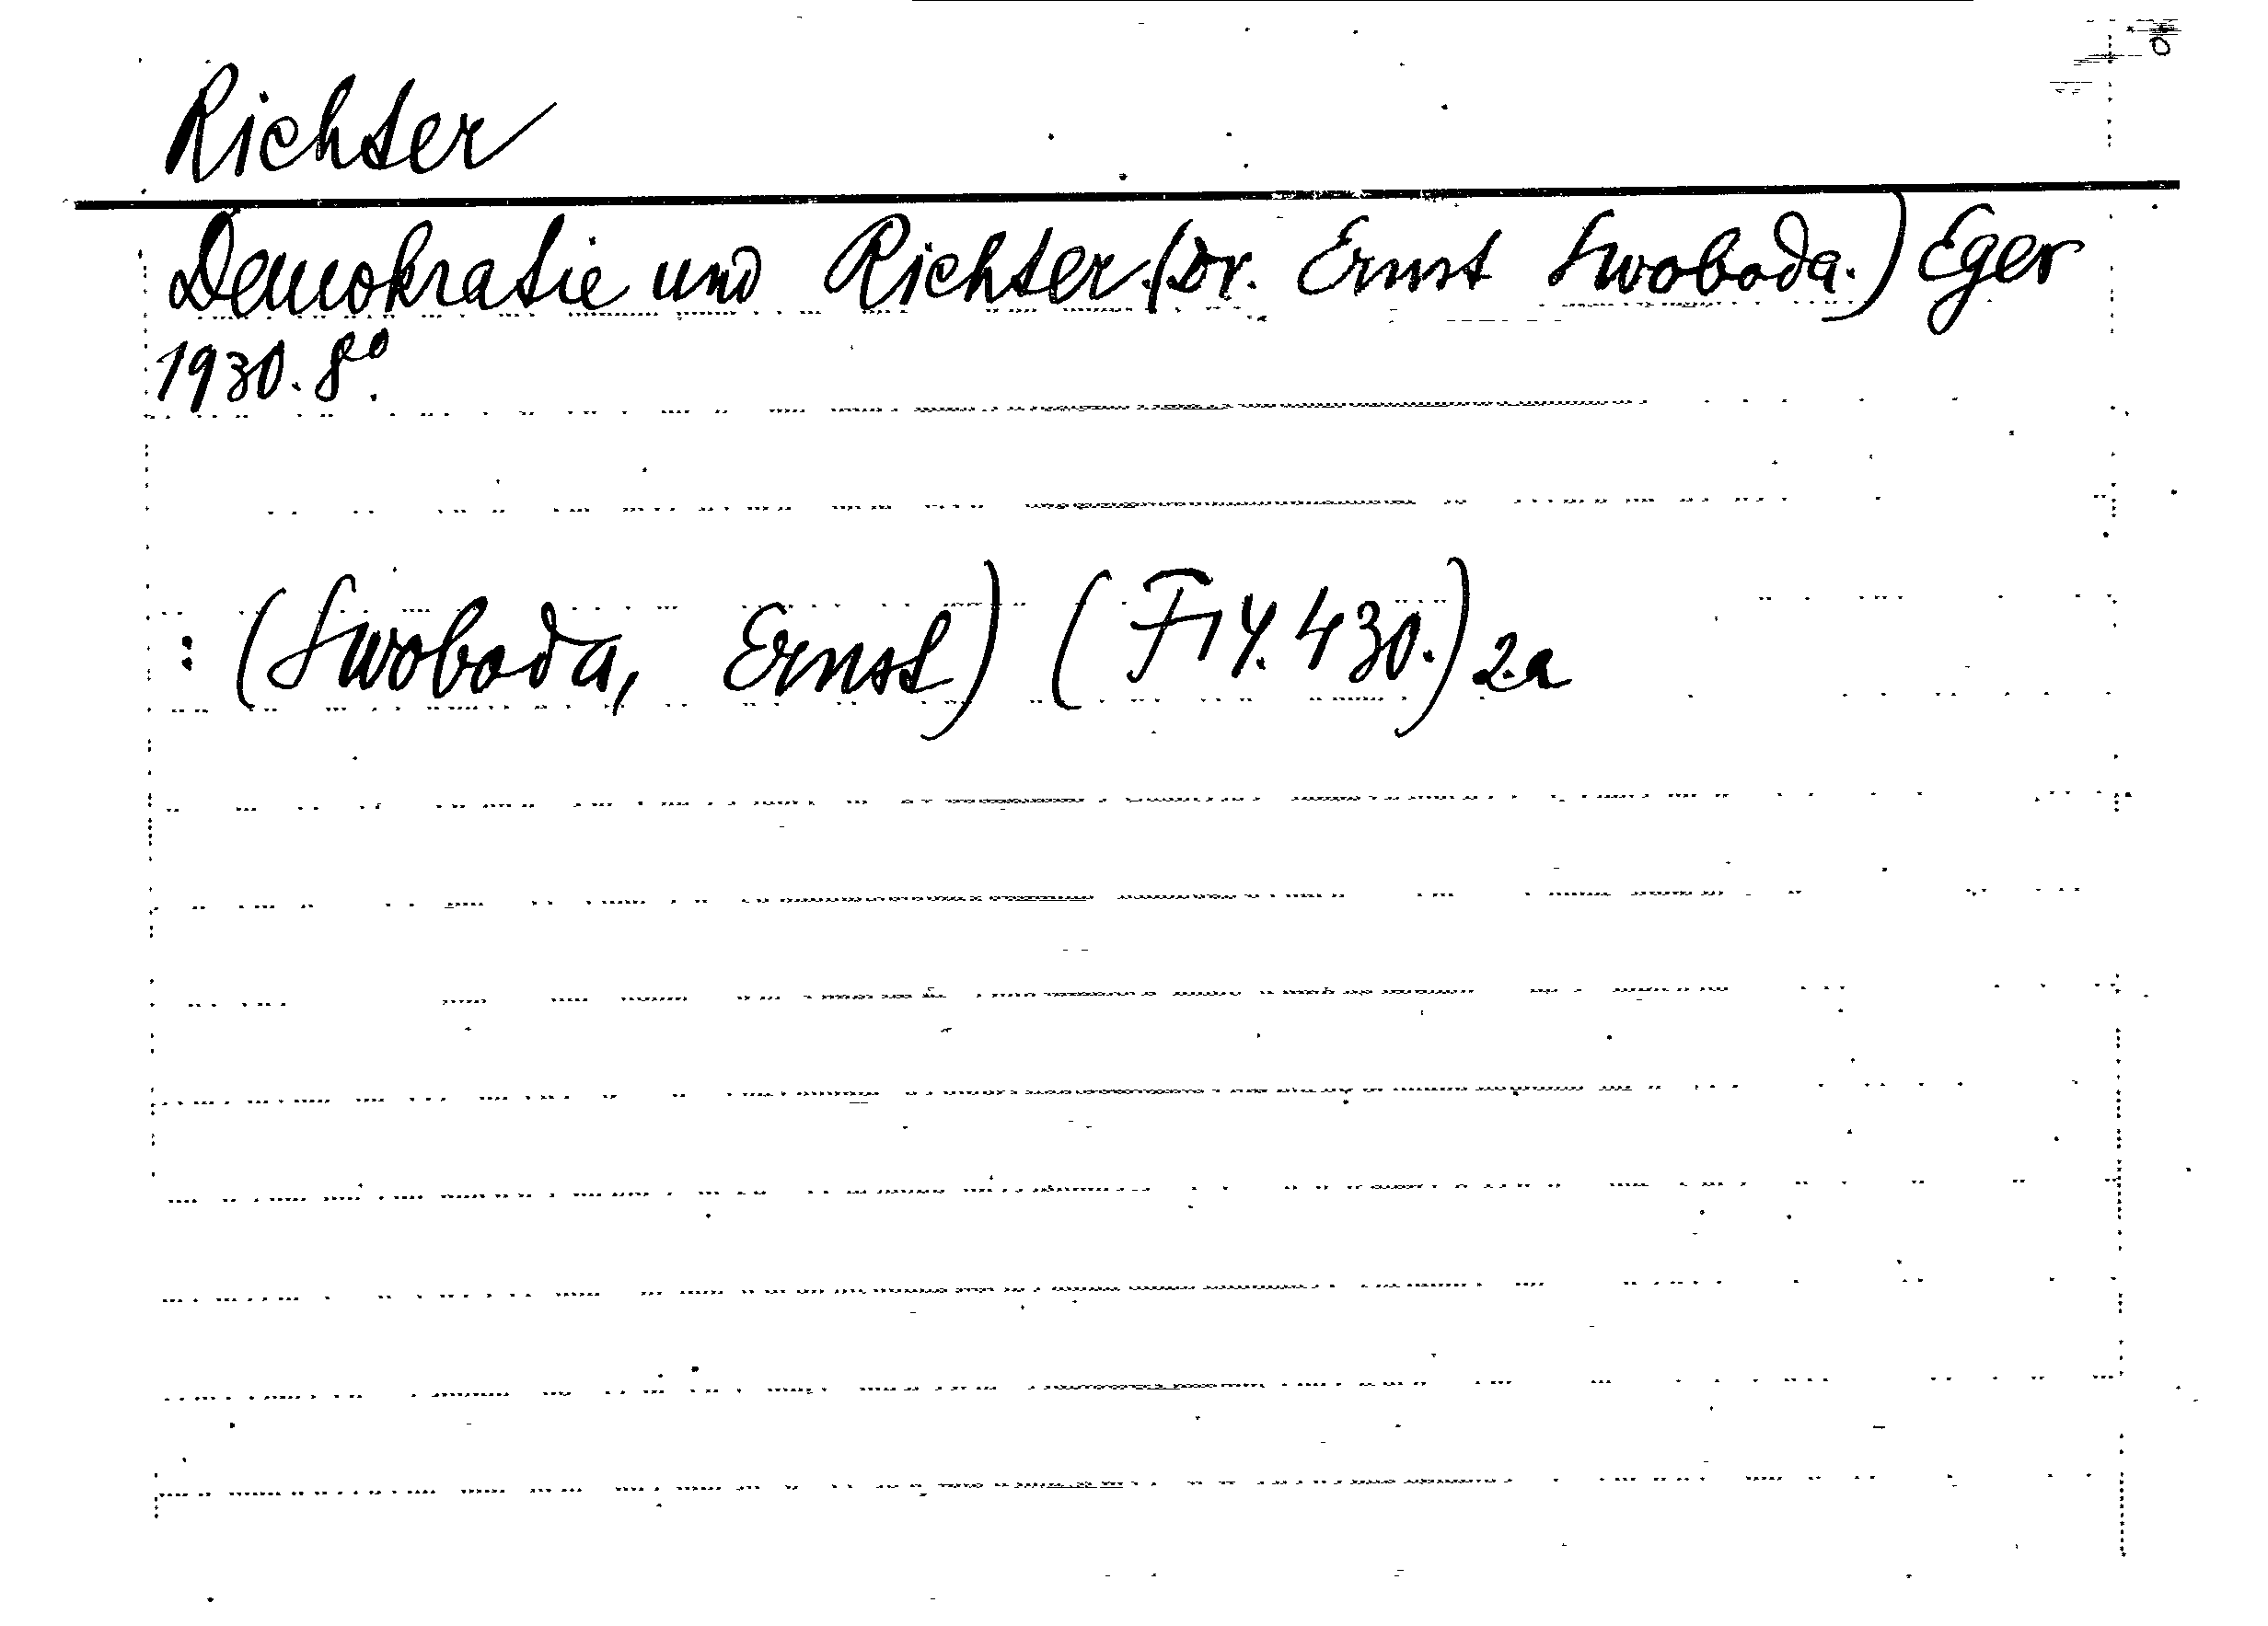 Richter
Demokratie und Richter. (Dr. Ernst Swoboda.) Eger
1930. 8°.
: (Swoboda, Ernst) (F14.430.) 2.a